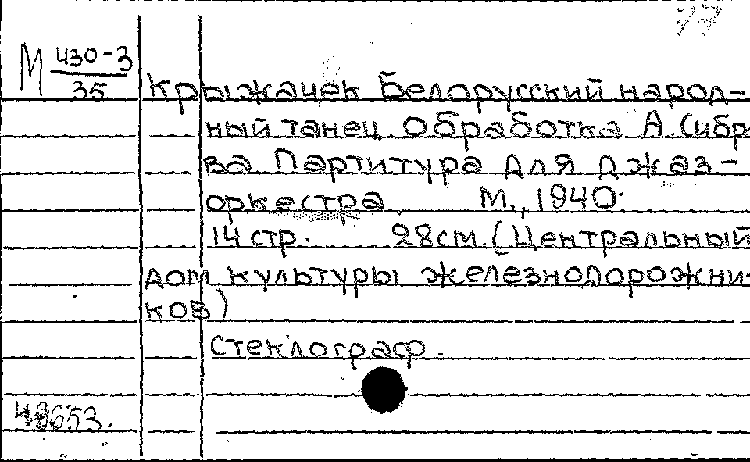 М 430-3
35
Крыжачек Белорусский народ-
ный танец. Обработка А. Сибр
ва Партитура для джаз-
оркестра М., 1940.
14 стр. 28см. (Центральный
дом культуры железнодорожни-
ков)
Стеклограф.
48653.